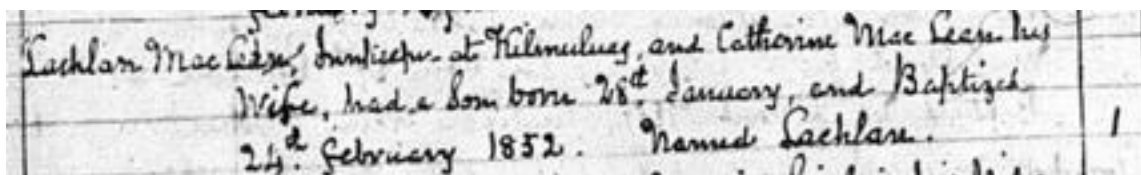 Lachlan MacLean, Innkeeper at Kilmuluag, and Catherine MacLean his
Wife, had a Son born 28th January, and Baptized
24th February 1852. Named Lachlan. 1